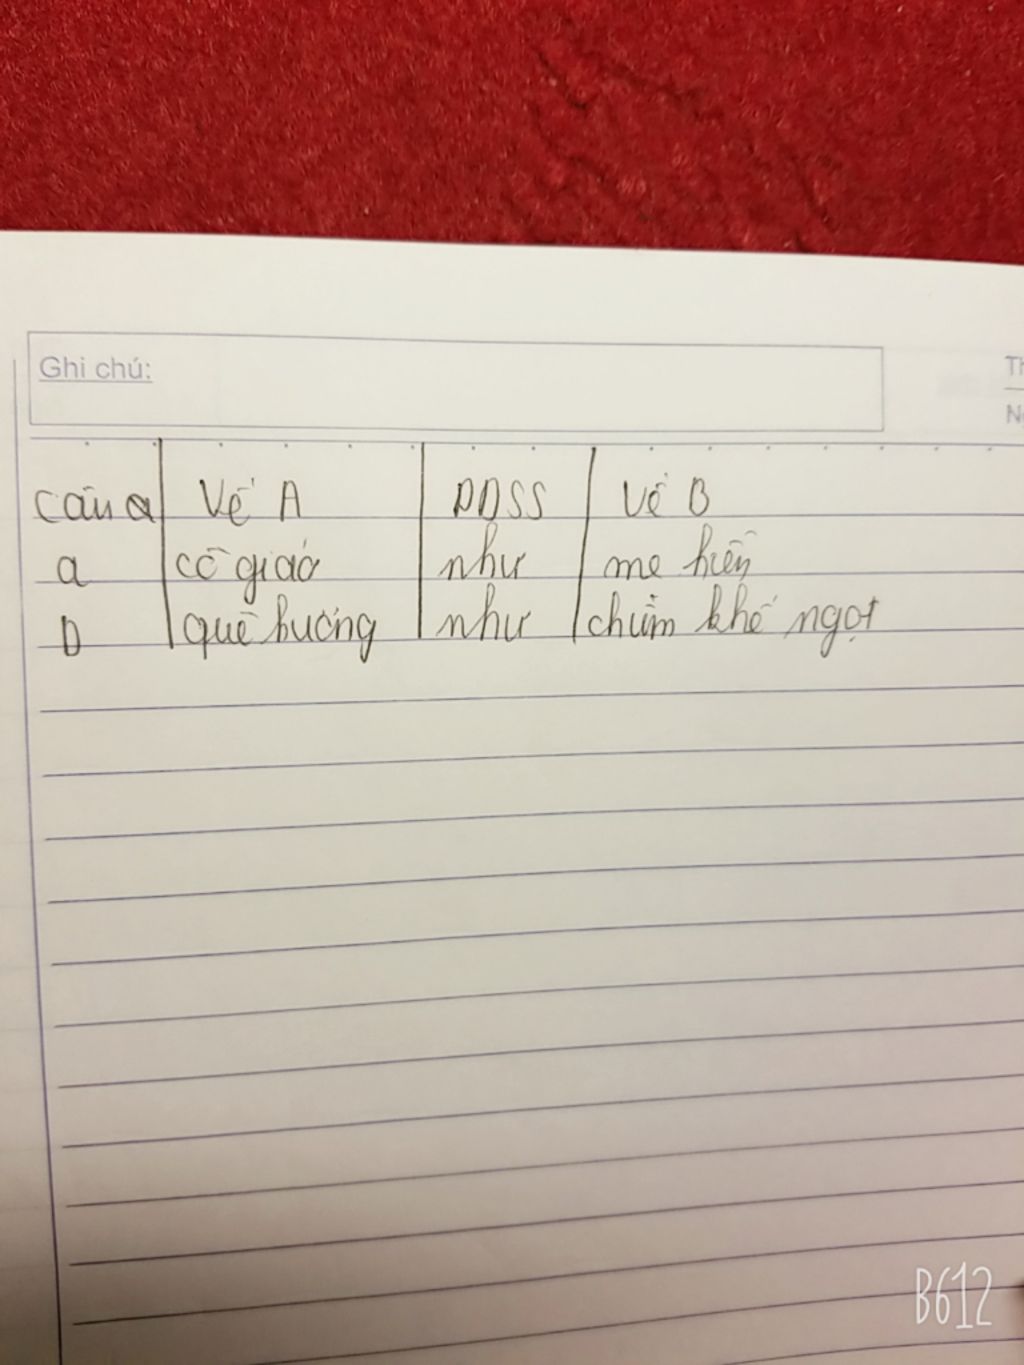 Ghi chú:
Th
câu a Vế A PDSS Vế B
a cô giáo như mẹ hiền
b quê hương như chùm khế ngọt
B612